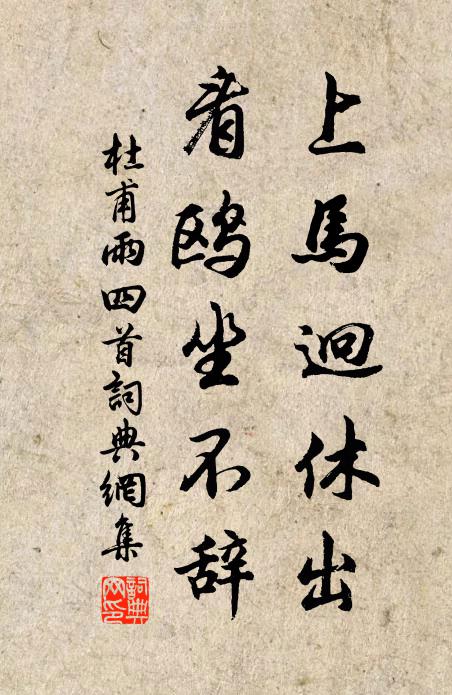 上馬迴休出
看鷗坐不辞
杜甫雨四首詞典網集
詞典網印